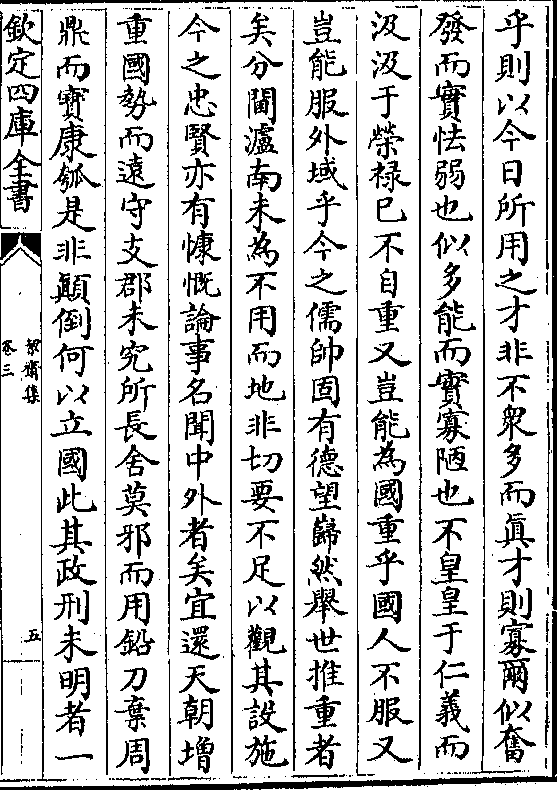 乎則以今日所用之才非不衆多而眞才則寡爾似奮
發而實怯弱也似多能而實寡陋也不皇皇于仁義而
汲汲于榮祿已不自重又豈能為國重乎國人不服又
豈能服外域乎今之儒帥固有德望巋然舉世推重者
矣分閫瀘南未為不用而地非切要不足以觀其設施
今之忠賢亦有慷慨論事名聞中外者矣宜還天朝增
重國勢而遠守支郡未究所長舍莫邪而用鉛刀棄周
鼎而寳康瓠是非顚倒何以立國此其政刑未明者一
欽定四庫全書
絜齋集
卷三
五